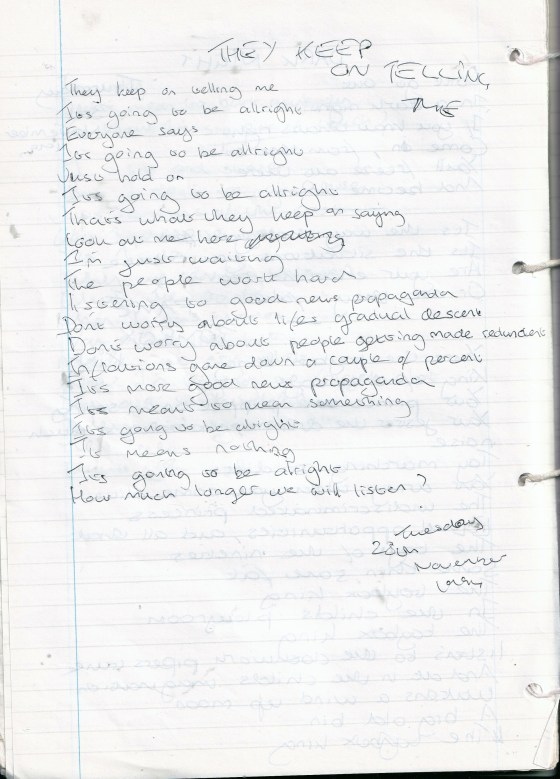 THEY KEEP
ON TELLING
ME
They keep on telling me
Its going to be allright
Everyone says
Its going to be allright
Just hold on
Its going to be allright
That's what they keep on saying
Look at me here
I'm just waiting
The people work hard
listening to good news propaganda
Don't worry about lifes gradual descent
Don't worry about people getting made redundent
Inflations gone down a couple of percent
Its more good news propaganda
Its meant to mean something
Its going to be alright
It means nothing
Its going to be alright
How much longer we will listen?
Tuesday
23rd
November